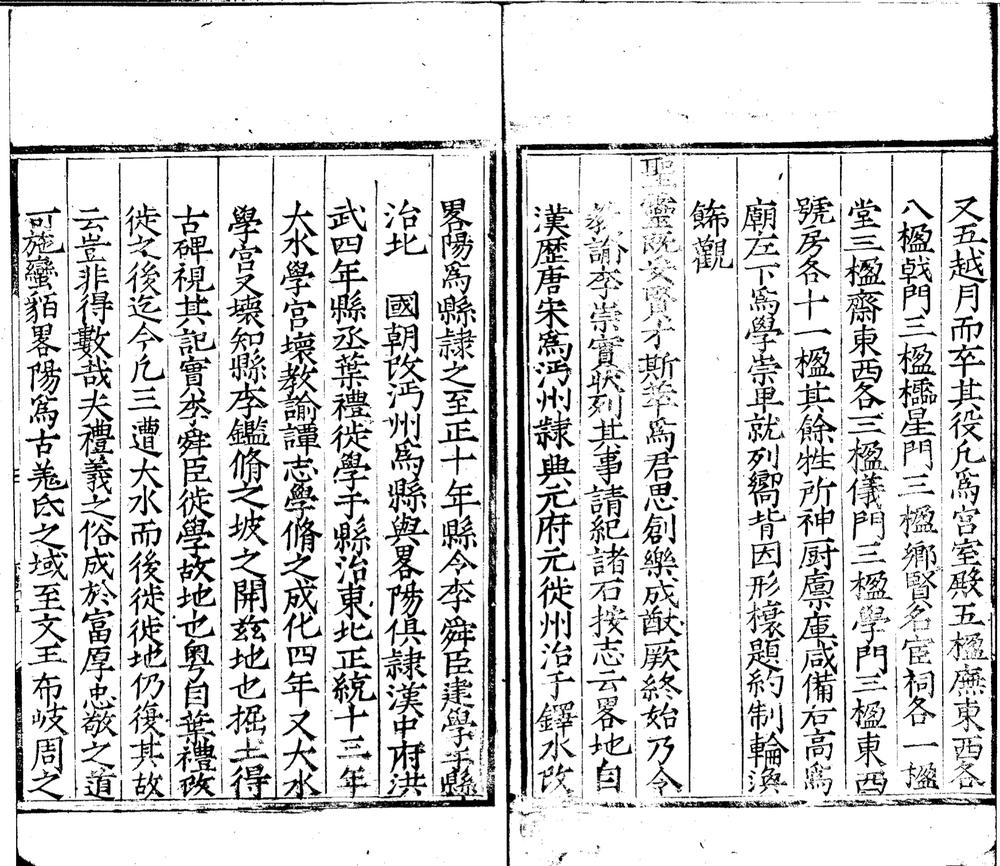 又五越月而卒其役凡爲宫室殿五楹廡東西各
八楹戟門三楹櫺星門三楹鄉賢名宦祠各一楹
堂三楹齋東西各三楹儀門三楹學門三楹東西
號房各十一楹其餘牲所神厨廪庫咸備右高爲
廟左下爲學崇卑就列嚮背因形榱題約制輪渙
飾觀
聖靈旣安賢才斯萃爲君思創樂成猷厥終始乃令
教諭李崇實狀列其事請紀諸石按志云畧地自
漢歷唐宋爲沔州隸興元府元徙州治于鐸水改
畧陽爲縣隷之至正十年縣令李舜臣建學于縣
治北 國朝改沔州爲縣與畧陽俱隷漢中府洪
武四年縣丞葉禮徙學于縣治東北正統十三年
大水學宫壞教諭譚志學脩之成化四年又大水
學宫又壞知縣李鑑脩之坡之開兹地也掘土得
古碑視其記實李舜臣徙學故地也粤自葉禮改
徙之後迄今凡三遭大水而後徙徙地仍復其故
云豈非得數哉夫禮義之俗成於富厚忠敬之道
可施蠻貊畧陽爲古羗氐之域至文王布岐周之